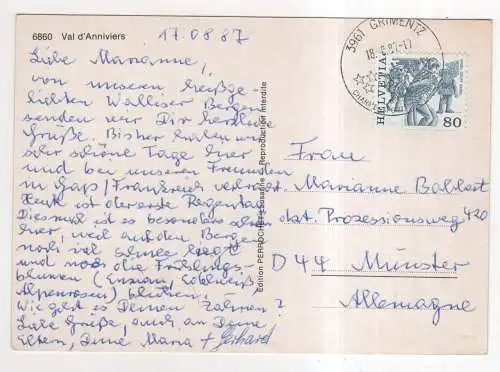 6860 Val d'Anniviers
17.08.87
Liebe Marianne,
von unseren heißge-
liebten Walliser Bergen
senden wir Dir herzliche
Grüße. Bisher haben wir
sehr schöne Tage hier
und bei unseren Freunden
in Gap/Frankreich verlebt.
Heute ist der erste Regentag.
Diesmal ist es besonders schön
hier, weil auf den Bergen
noch viel Schnee liegt
und noch die Frühlings-
blumen (Enzian, Edelweiß
Alpenrosen) blühen.
Wie geht es Deinen Zähnen?
Liebe Grüße, auch an Deine
Eltern, Deine Maria + Gerhard
Edition PERROCHET Lausanne — Reproduction interdite
3961 GRIMENTZ
18.8.87-17
HELVETIA
80
Frau
Marianne
kat. Prozessionsweg 420
D 44 Münster
Allemagne